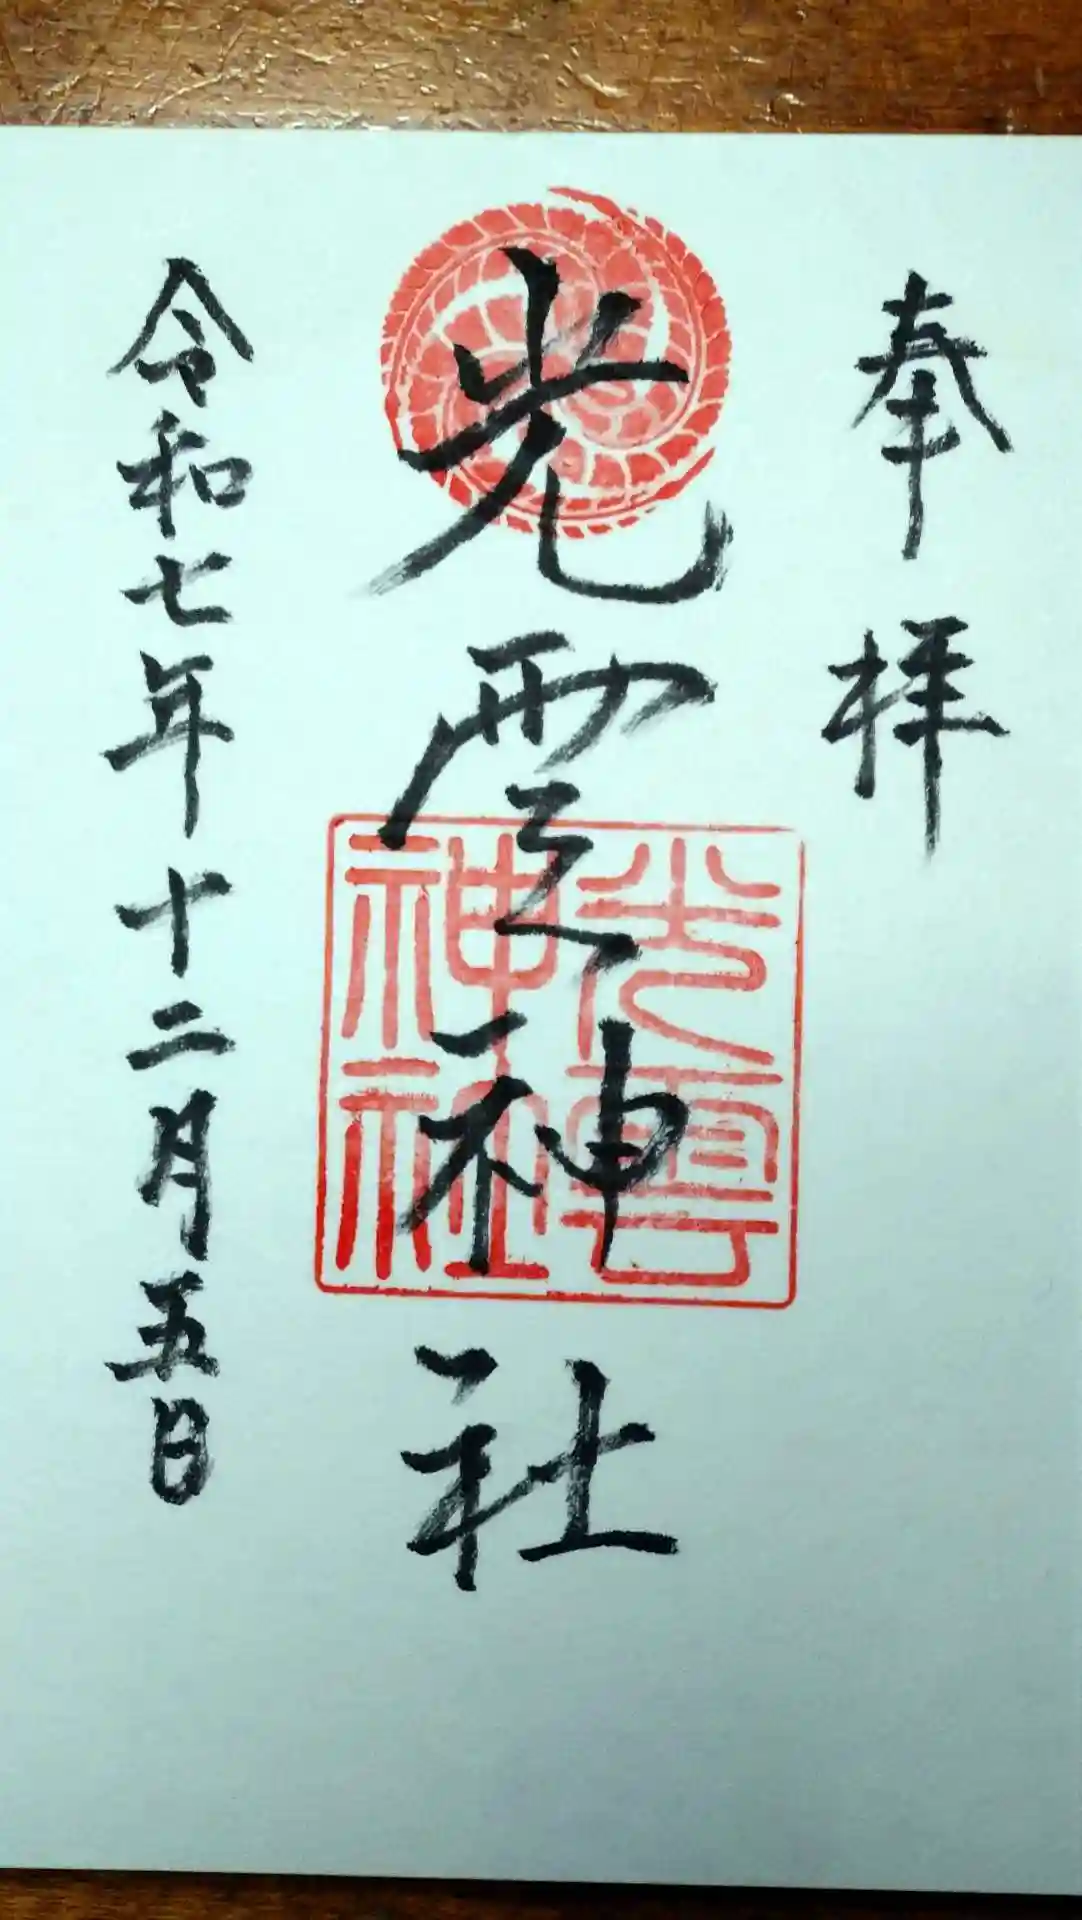 奉拝
光雲神社
光雲
神社
令和七年十二月五日